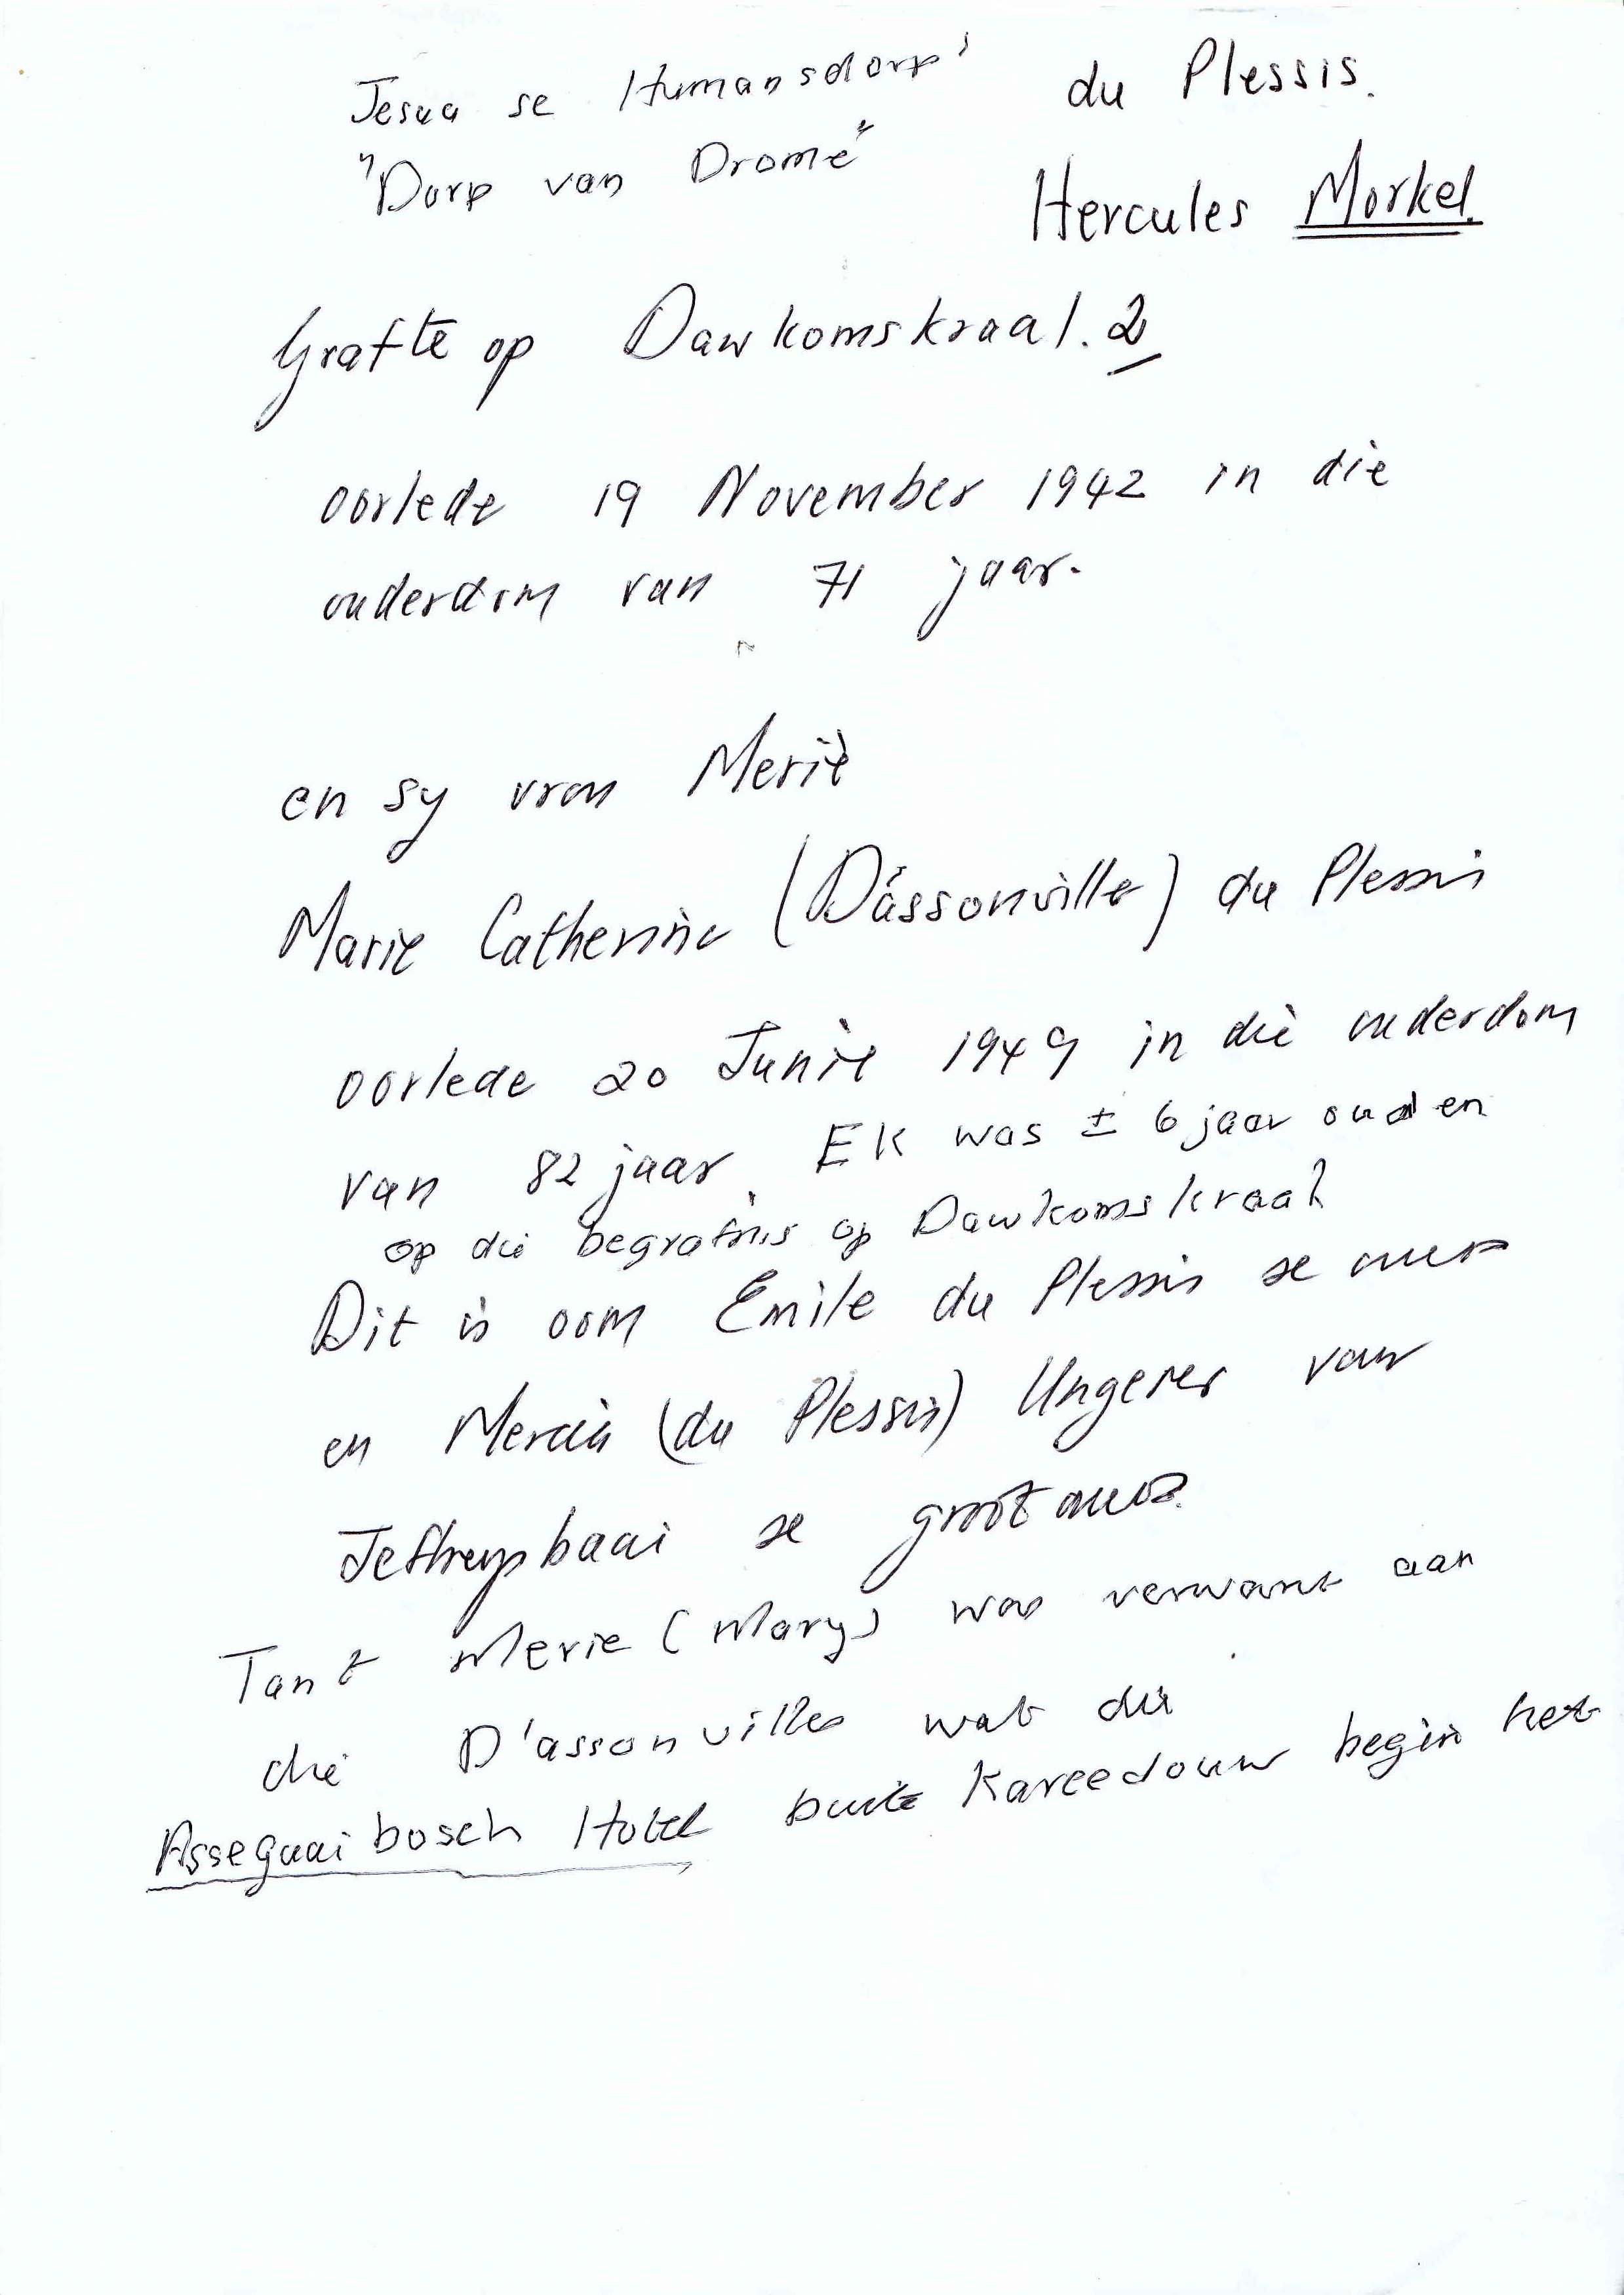 Jesaa se Humansdorp'
du Plessis.
"Dorp van Drome"
Hercules Morkel.
Grafte op Dawkomskraal. 2
oorlede 19 November 1942 in die
ouderdom van 71 jaar.
en sy vrou Merie
Marie Catherine (D'assonville) du Plessis
oorlede 20 Junie 1949 in die ouderdom
van 82 jaar. Ek was ± 6 jaar oud en
op die begrafnis op Dawkomskraal
Dit is oom Emile du Plessis se ouers
en Mercia (du Plessis) Ungerer van
Jeffreysbaai se grootouers.
Tant Merie (Mary) was verwant aan
die D'assonvilles wat die
Assegaaibosch Hotel buite Kareedouw begin het